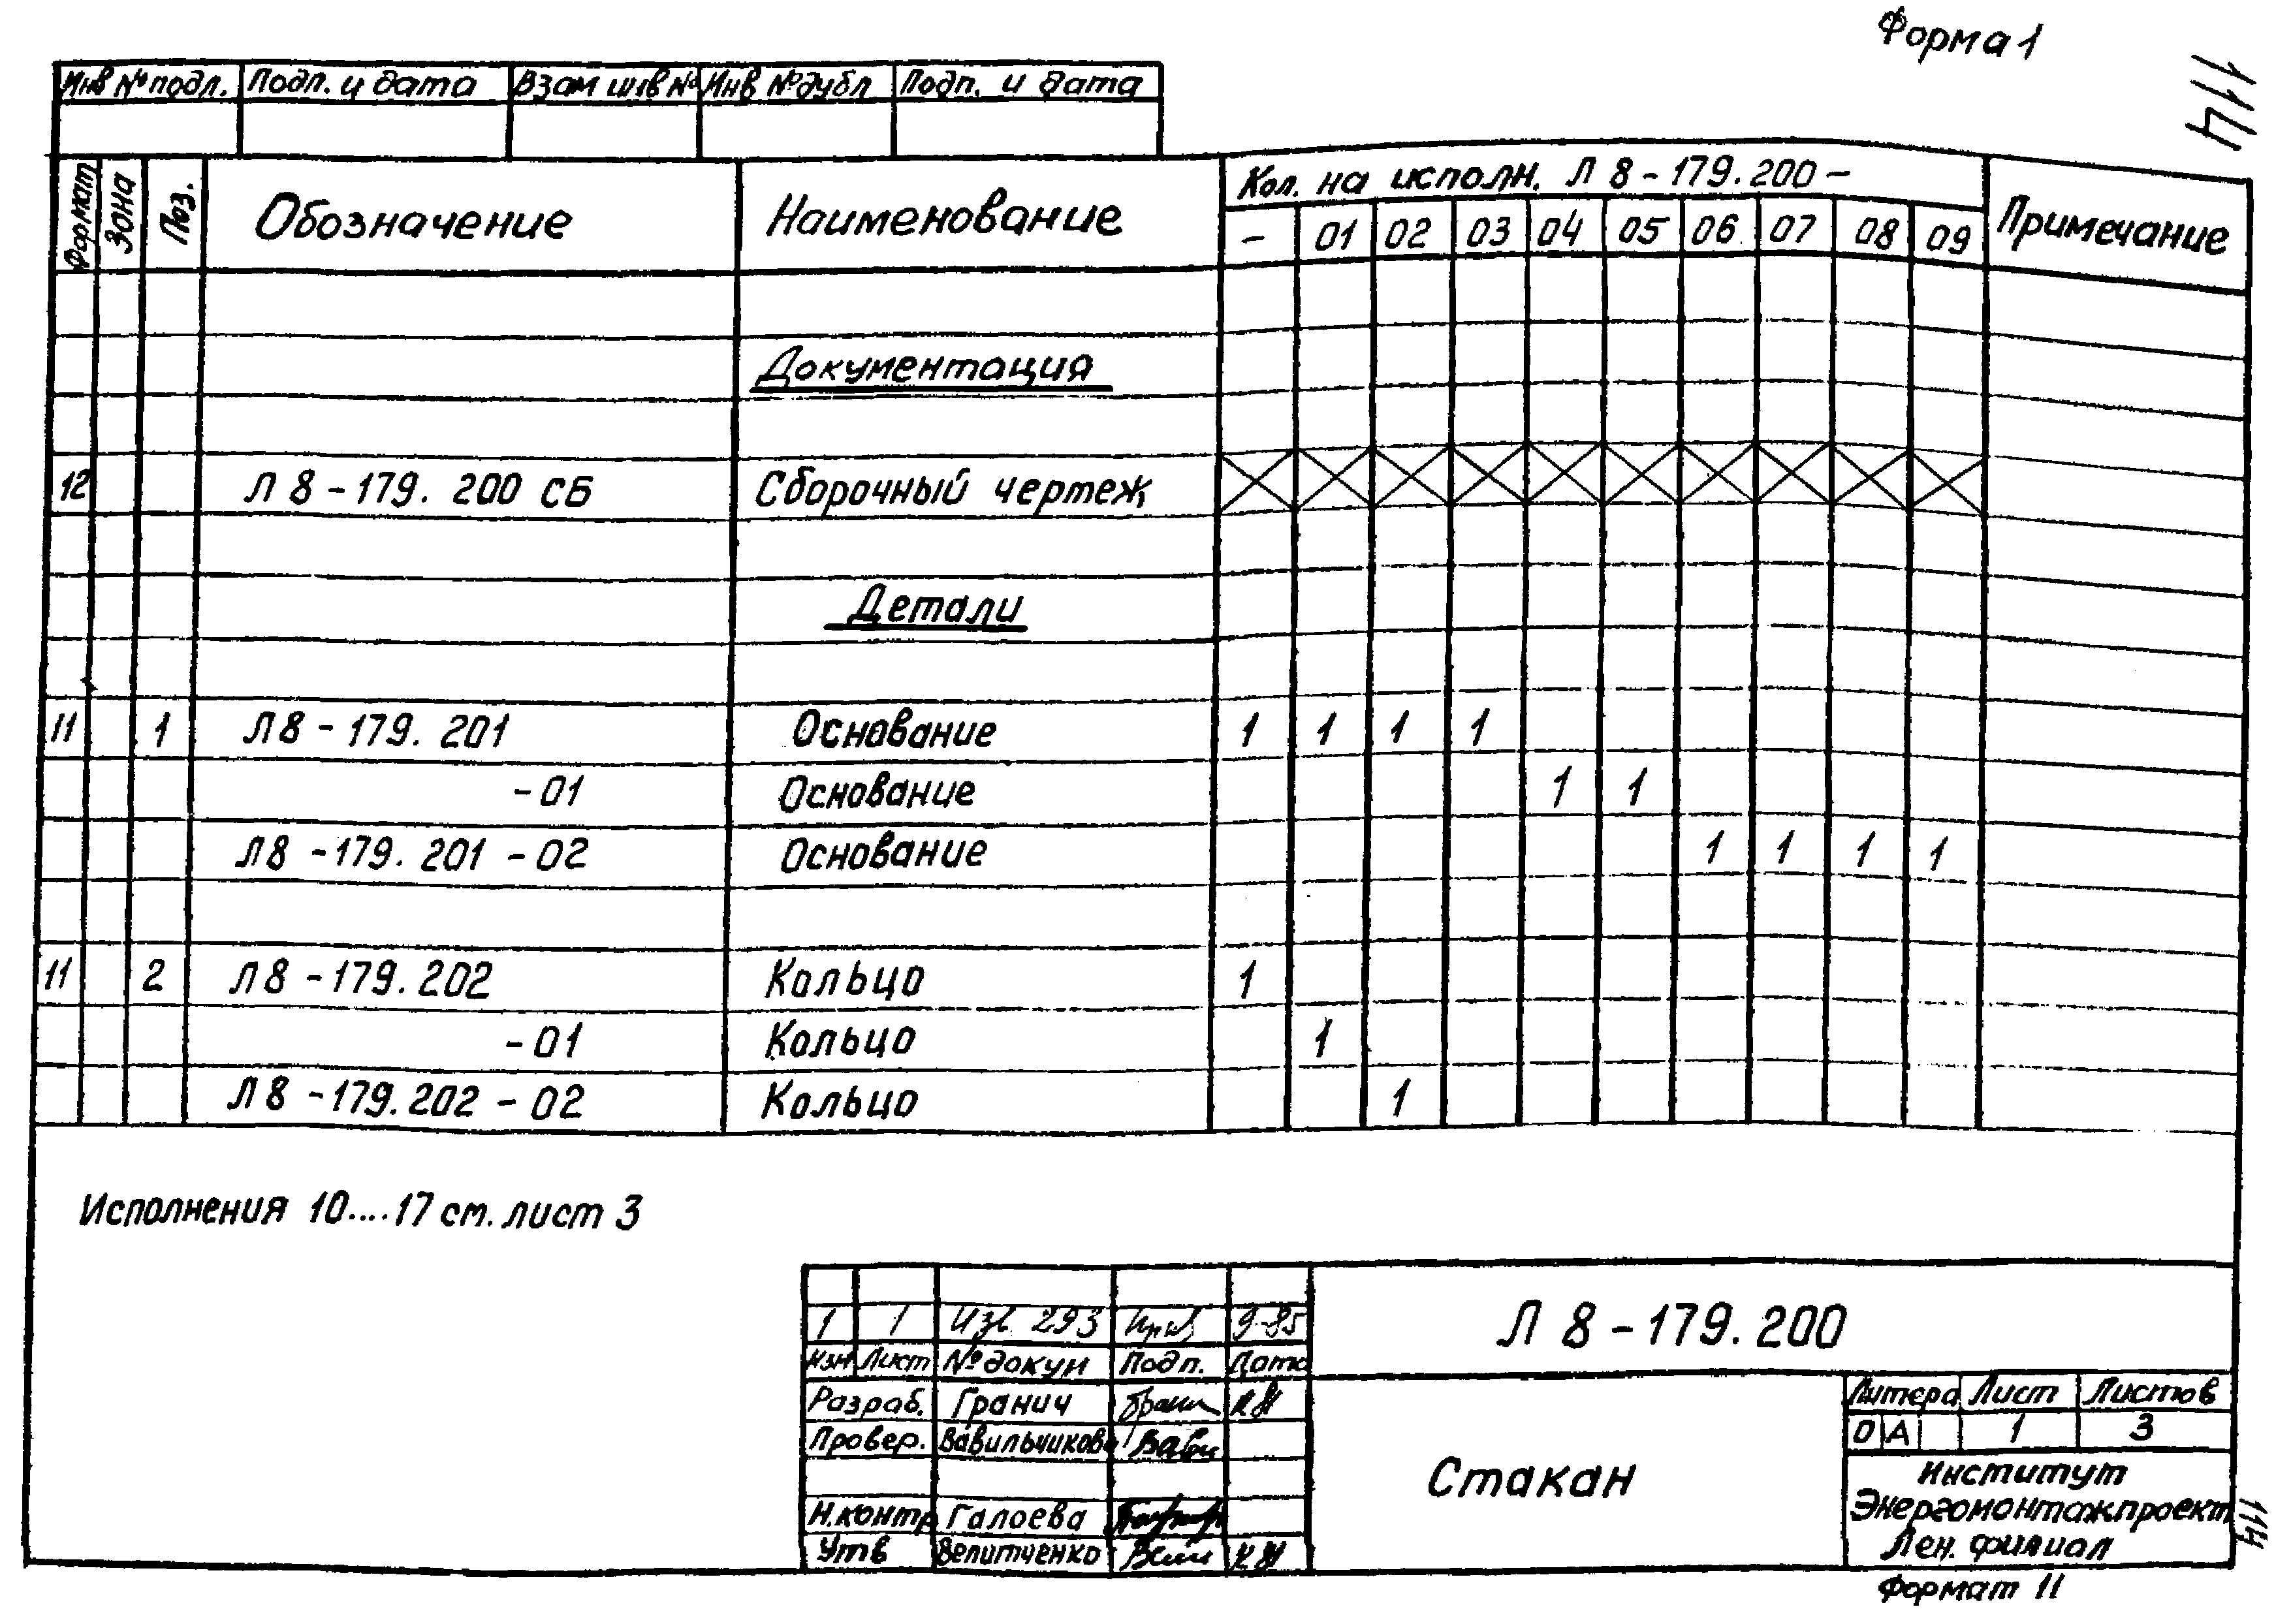 Форма 1
114
Инв № подл. Подп. и дата Взам инв № Инв № дубл Подп. и дата
Формат Зона Поз. Обозначение Наименование Кол. на исполн. Л 8 - 179. 200 - Примечание
- 01 02 03 04 05 06 07 08 09
Документация
12 Л 8 - 179. 200 СБ Сборочный чертеж
Детали
11 1 Л 8 - 179. 201 Основание 1 1 1 1
- 01 Основание 1 1
Л 8 - 179. 201 - 02 Основание 1 1 1 1
11 2 Л 8 - 179. 202 Кольцо 1
- 01 Кольцо 1
Л 8 - 179. 202 - 02 Кольцо 1
Исполнения 10....17 см. лист 3
1 1 Изв 293 9-85
Изм Лист № докум Подп. Дата
Л 8 - 179. 200
Разраб. Гранич
Провер. Вавильчикова
Н.контр Галоева
Утв Велитченко
Стакан
Литера Лист Листов
О А 1 3
Институт
Энергомонтажпроект
Лен. филиал
114
Формат 11